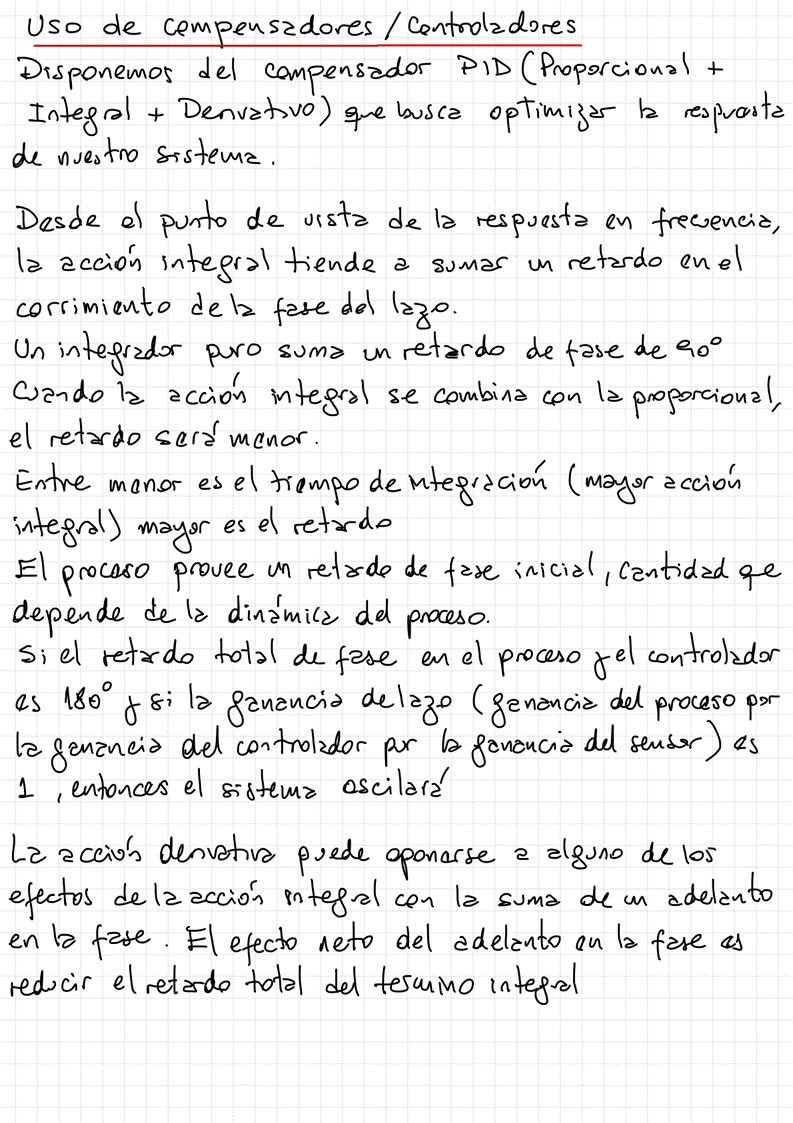 Uso de compensadores / Controladores
Disponemos del compensador PID (Proporcional +
Integral + Derivativo) que busca optimizar la respuesta
de nuestro sistema.
Desde el punto de vista de la respuesta en frecuencia,
la acción integral tiende a sumar un retardo en el
corrimiento de la fase del lazo.
Un integrador puro suma un retardo de fase de 90°
Cuando la acción integral se combina con la proporcional,
el retardo será menor.
Entre menor es el tiempo de ntegración (mayor acción
integral) mayor es el retardo
El proceso provee un retardo de fase inicial, cantidad que
depende de la dinámica del proceso.
Si el retardo total de fase en el proceso y el controlador
es 180° y si la ganancia de lazo (ganancia del proceso por
la ganancia del controlador por la ganancia del sensor) es
1, entonces el sistema oscilará
La acción derivativa puede oponerse a alguno de los
efectos de la acción integral con la suma de un adelanto
en la fase. El efecto neto del adelanto en la fase es
reducir el retardo total del termino integral